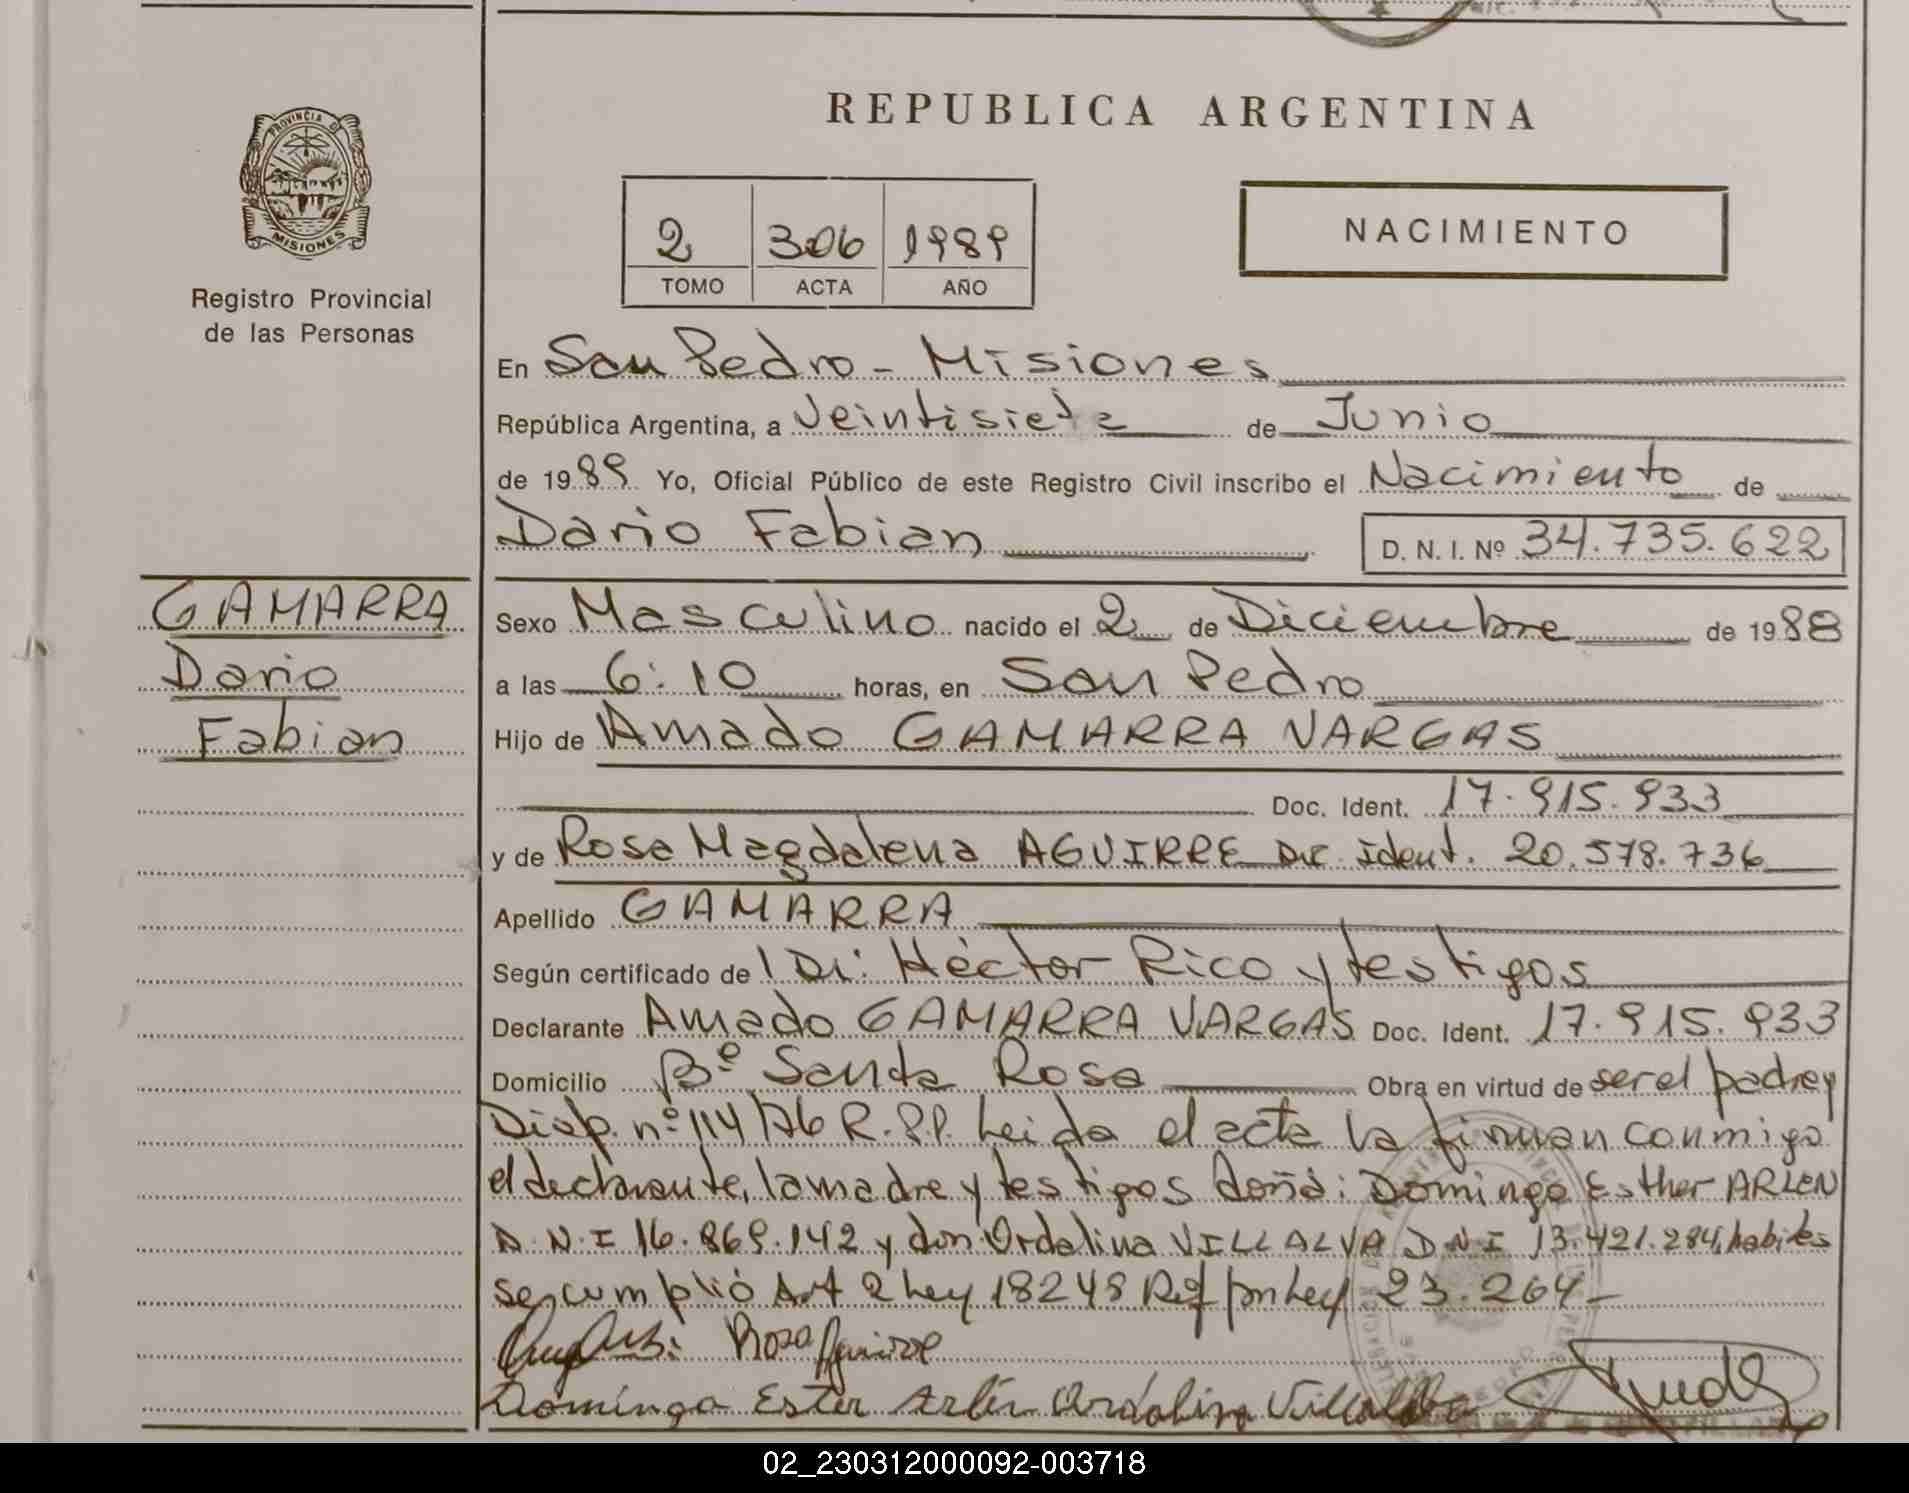 REPUBLICA ARGENTINA
PROVINCIA DE
MISIONES
Registro Provincial
de las Personas
2 306 1989
TOMO ACTA AÑO
NACIMIENTO
En San Pedro - Misiones
República Argentina, a Veintisiete de Junio
de 1989 Yo, Oficial Público de este Registro Civil inscribo el Nacimiento de
Dario Fabian D. N. I. Nº 34.735.622
GAMARRA
Dario
Fabian
Sexo Masculino nacido el 2 de Diciembre de 1988
a las 6:10 horas, en San Pedro
Hijo de Amado GAMARRA VARGAS
Doc. Ident. 17.915.933
y de Rosa Magdalena AGUIRRE Doc. Ident. 20.578.736
Apellido GAMARRA
Según certificado de Dr. Héctor Rico y testigos
Declarante Amado GAMARRA VARGAS Doc. Ident. 17.915.933
Domicilio Bº Santa Rosa Obra en virtud de ser el padre y
Disp. nº 114/76 R.P.P. Leida el acta la firman conmigo
el declarante, la madre y testigos doña: Dominga Esther ARLEN
D.N.I 16.869.142 y don Ordalina VILLALVA D.N.I 13.421.284, habiles
se cumplió Art 2 Ley 18248 Ref por Ley 23.264-
Rosa Aguirre
Dominga Ester Arlen Ordalina Villalba
02_230312000092-003718